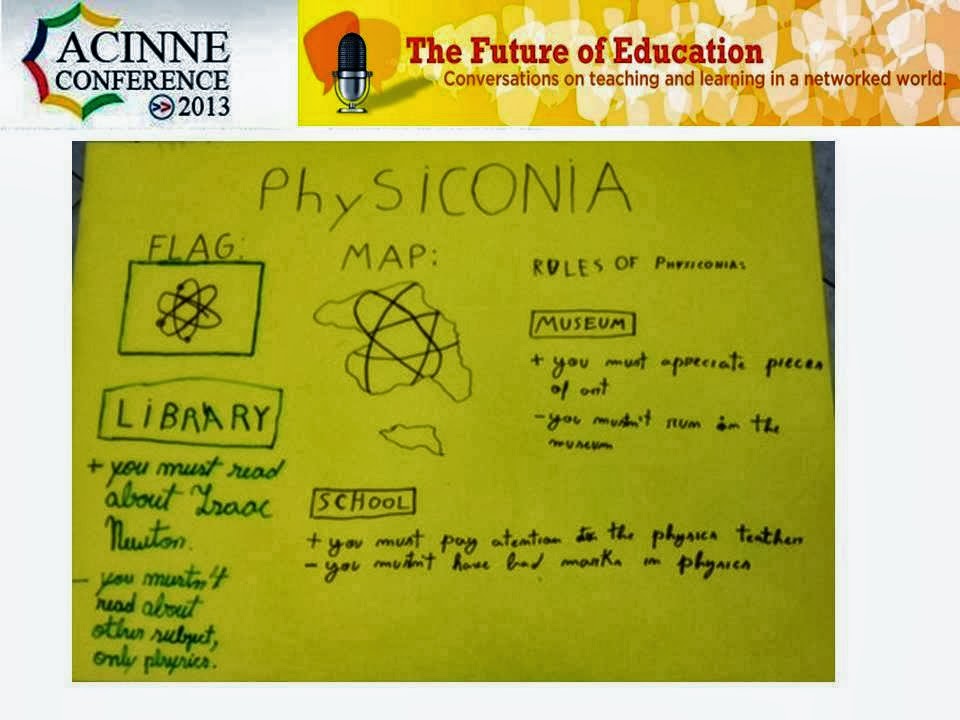 ACINNE
CONFERENCE
2013
The Future of Education
Conversations on teaching and learning in a networked world.
PhySiCONiA
FLAG:
MAP:
RULES OF PHYSICONIA:
MUSEUM
+ you must appreciate pieces
of art
- you mustn't run in the
museum
LiBRARY
+ you must read
about Isaac
Newton.
- you mustn't
read about
other subject,
only physics.
SCHOOL
+ you must pay atention to the physics teacher
- you mustn't have bad marks in physics